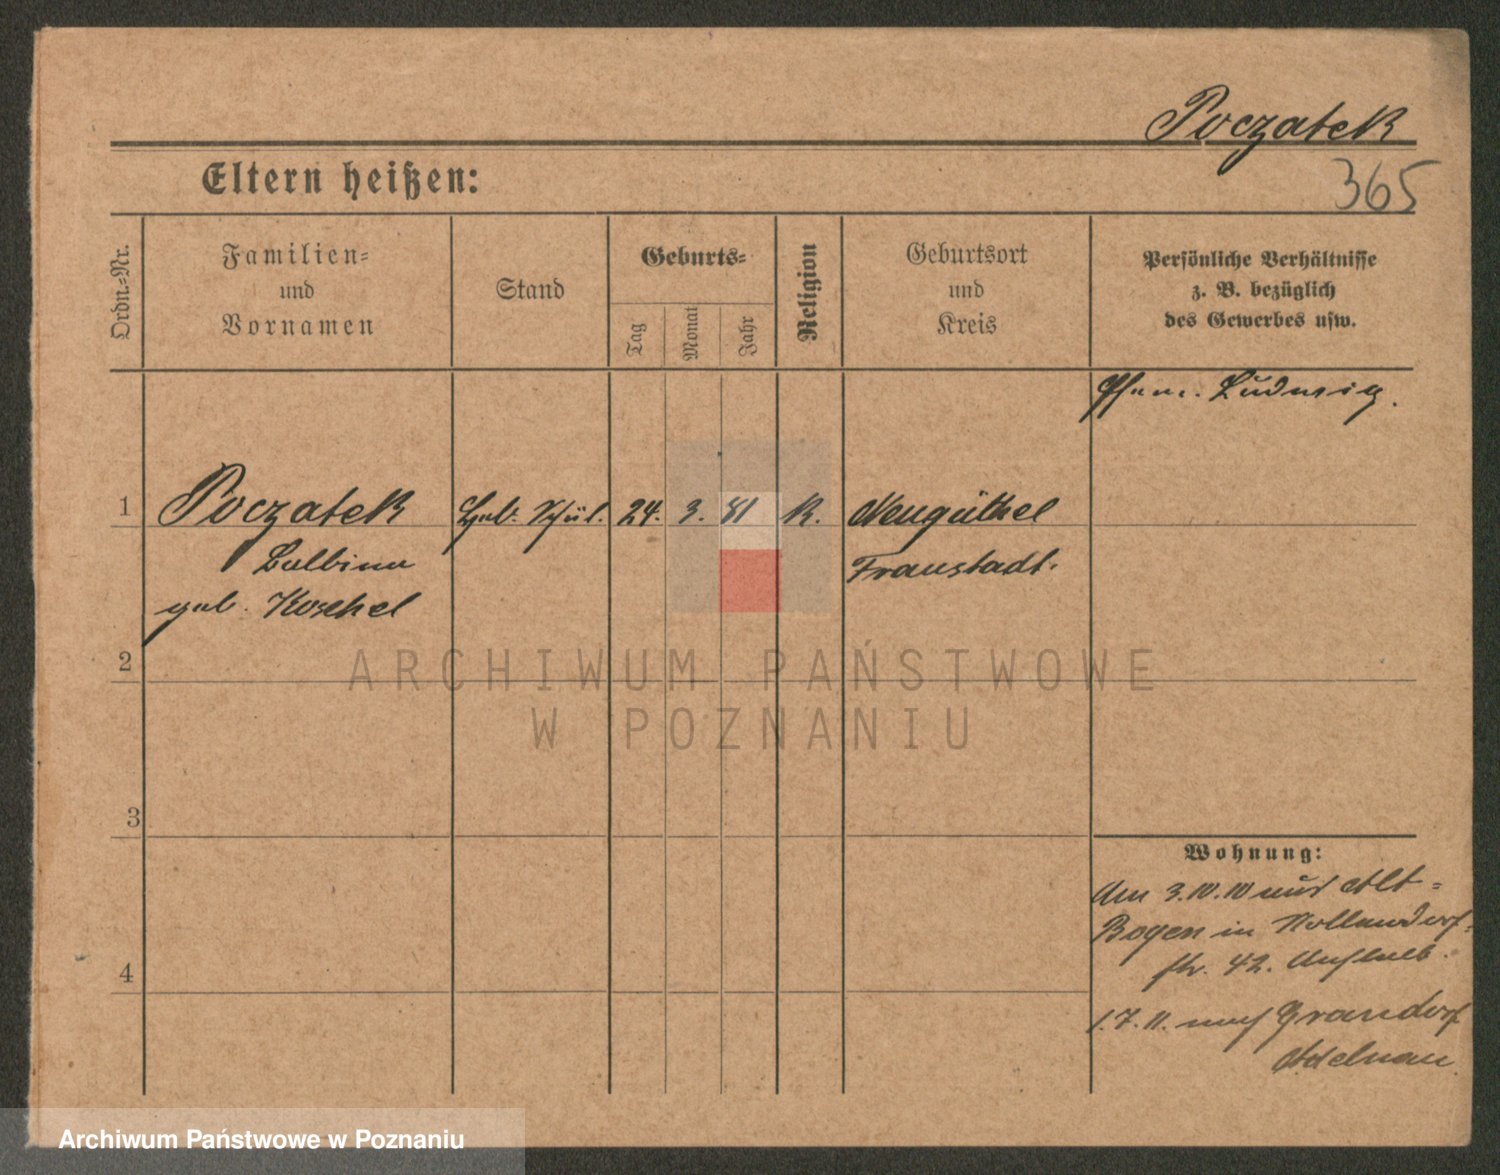 Poczatek
365
Eltern heißen:
Ordn.-Nr.
Familien-
und
Vornamen
Stand
Geburts-
Tag
Monat
Jahr
Religion
Geburtsort
und
Kreis
Persönliche Verhältnisse
z. B. bezüglich
des Gewerbes usw.
Ehem. Ludwig.
1
Poczatek
24. 3. 81
K.
Neugüthel
Balbina
Fraustadt.
geb. Koschel
2
ARCHIWUM PAŃSTWOWE
W POZNANIU
3
Wohnung:
Am 3.10.10 aus Alt-
Bogen in Hollendorf-
str. 42.
4
1.7.11. nach Grandorf
Adelnau
Archiwum Państwowe w Poznaniu